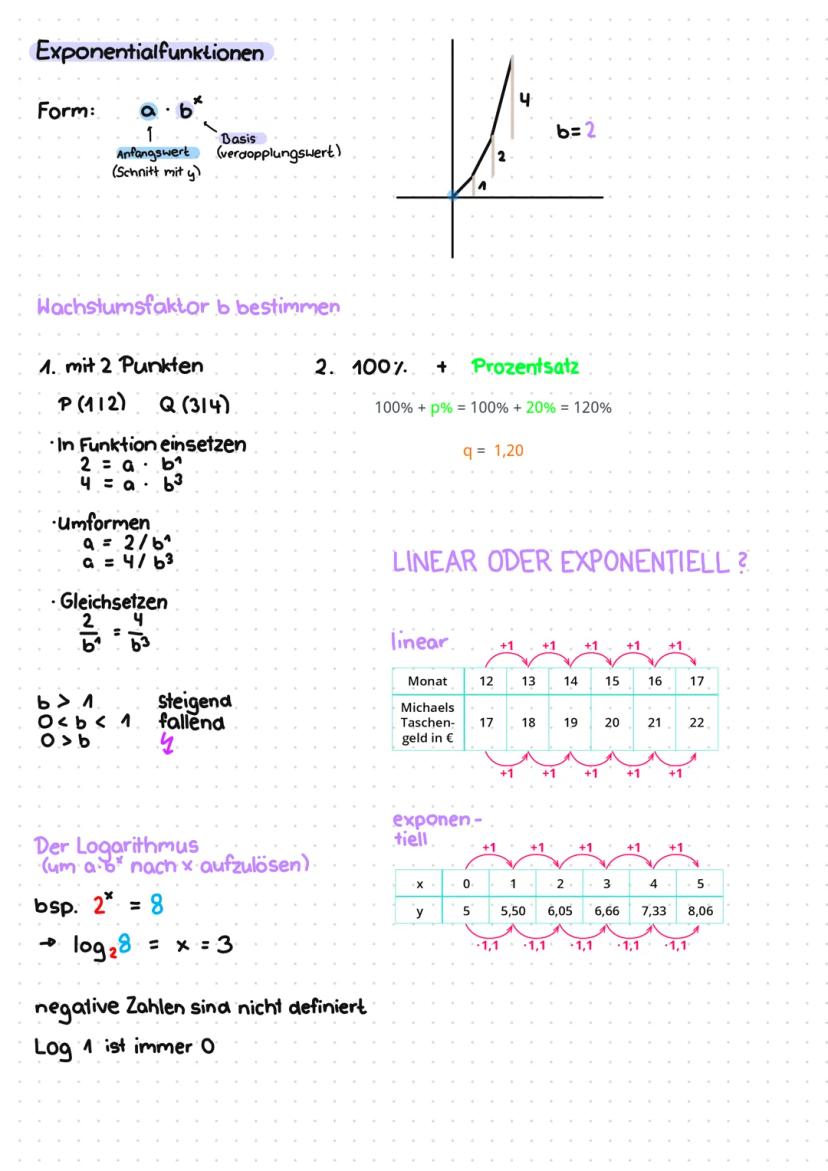 Exponentialfunktionen
Form: a · bˣ
Anfangswert
(Schnitt mit y)
Basis
(verdopplungswert)
4
2
1
b=2
Wachstumsfaktor b bestimmen
1. mit 2 Punkten
P(1|2) Q(3|4)
· In Funktion einsetzen
2 = a · b¹
4 = a · b³
· Umformen
a = 2/b¹
a = 4/b³
· Gleichsetzen
2/b¹ = 4/b³
b > 1 steigend
0 < b < 1 fallend
0 > b ↯
2. 100% + Prozentsatz
100% + p% = 100% + 20% = 120%
q = 1,20
Der Logarithmus
(um a·bˣ nach x aufzulösen)
bsp. 2ˣ = 8
→ log₂8 = x = 3
negative Zahlen sind nicht definiert
Log 1 ist immer 0
LINEAR ODER EXPONENTIELL ?
linear
+1 +1 +1 +1 +1
Monat 12 13 14 15 16 17
Michaels
Taschen-
geld in € 17 18 19 20 21 22
+1 +1 +1 +1 +1
exponen-
tiell
+1 +1 +1 +1 +1
x 0 1 2 3 4 5
y 5 5,50 6,05 6,66 7,33 8,06
·1,1 ·1,1 ·1,1 ·1,1 ·1,1